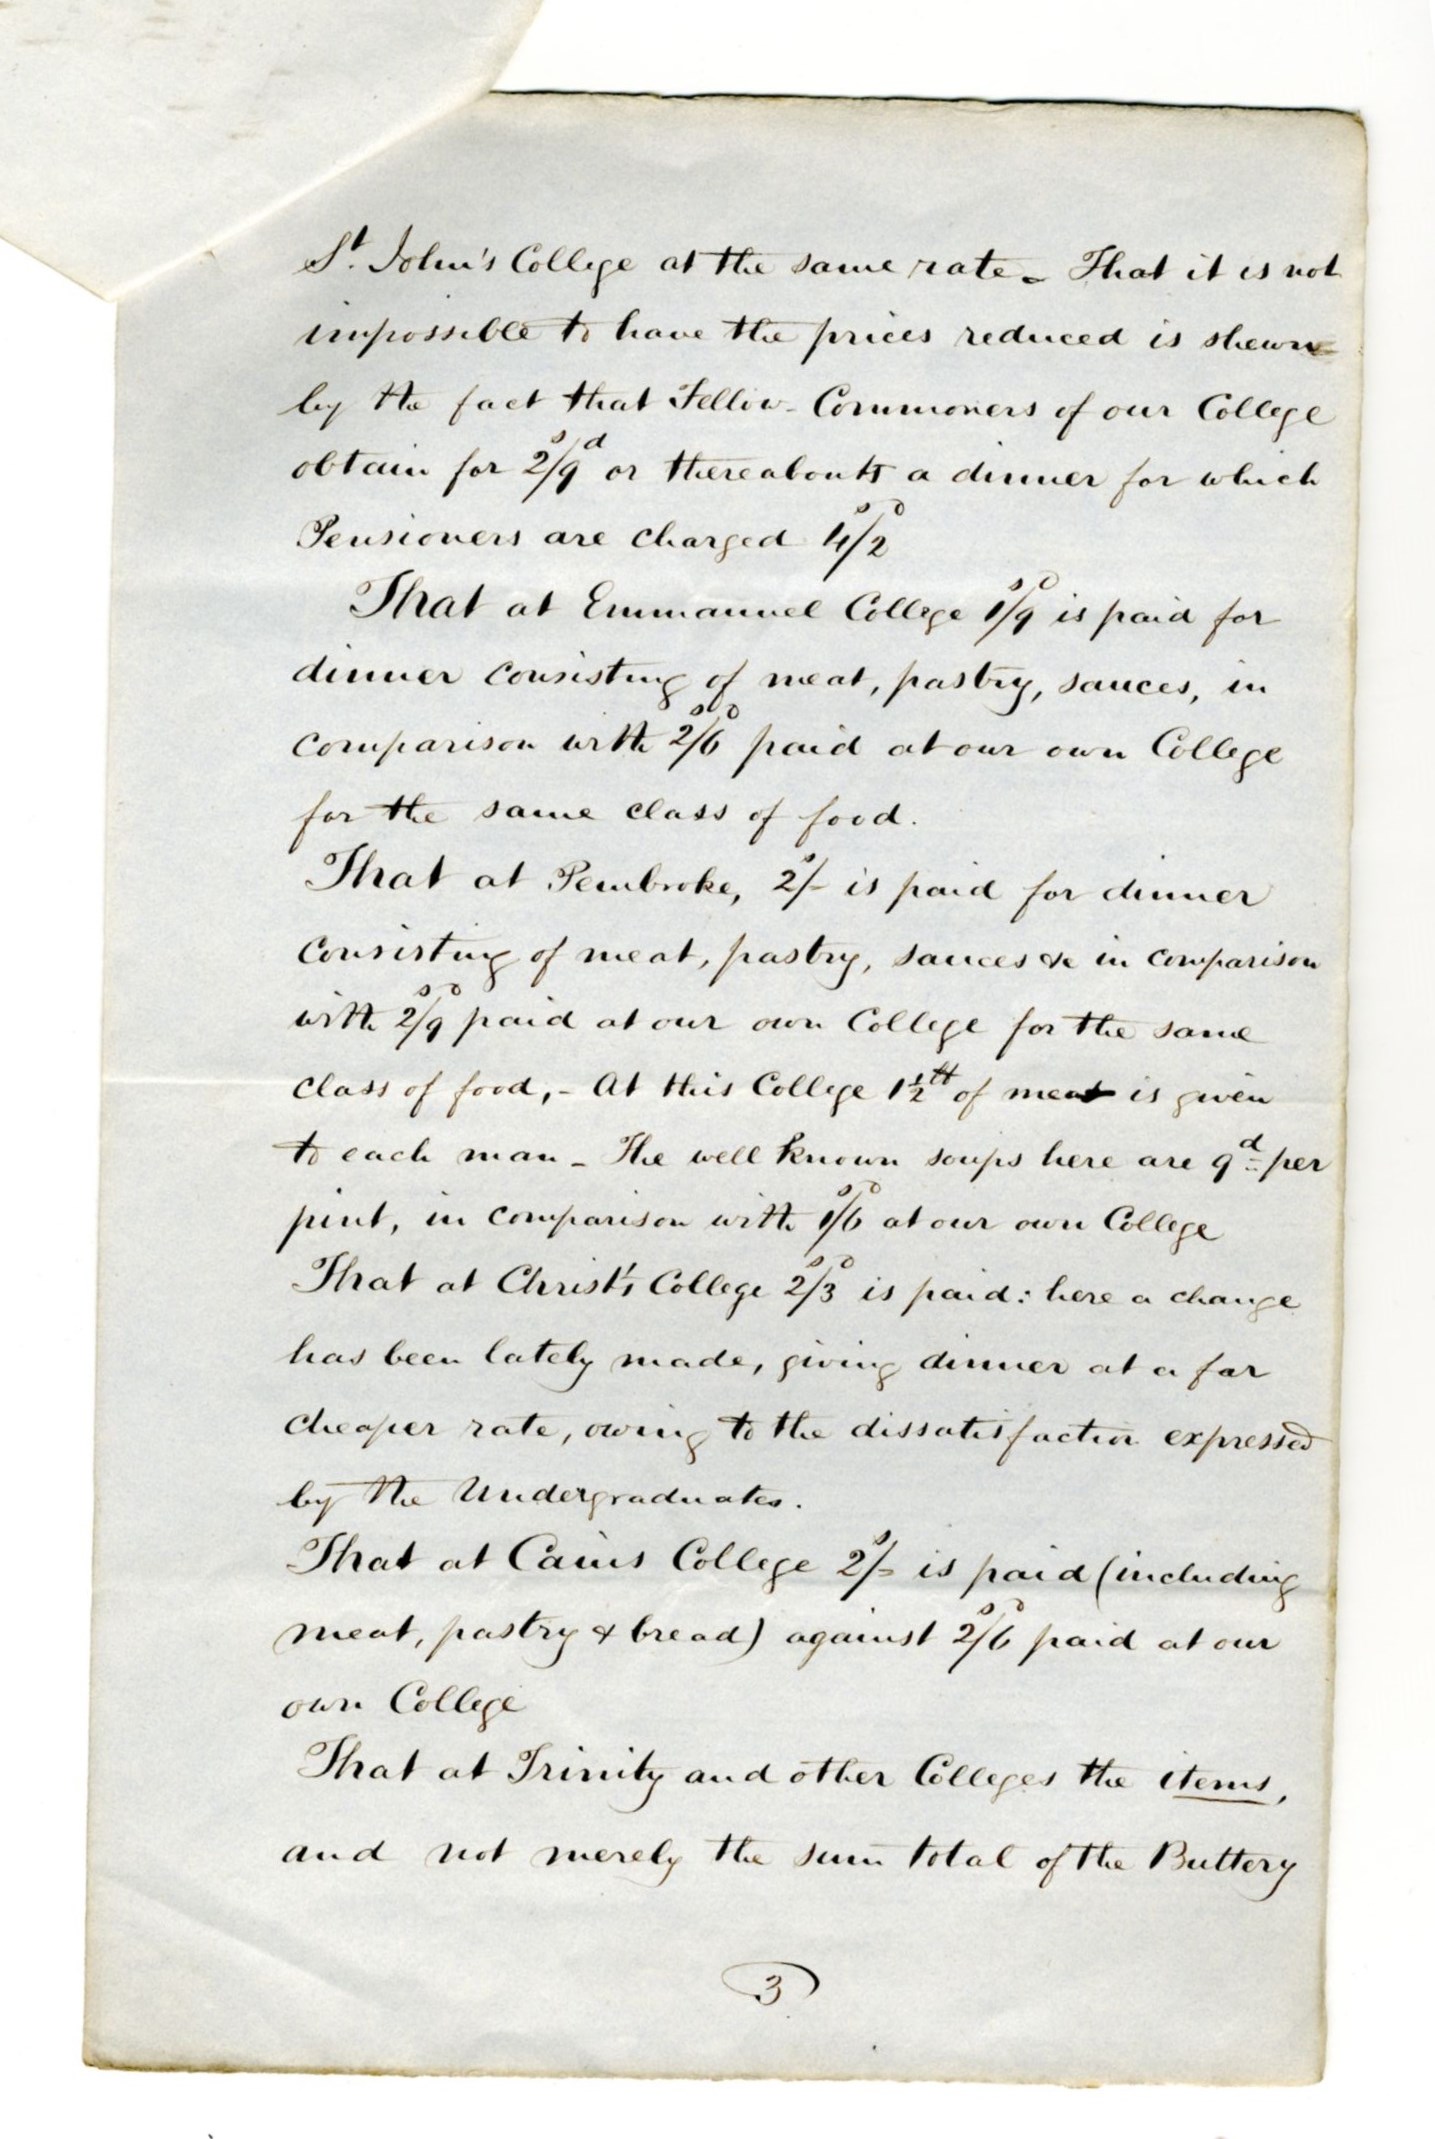 St. John's College at the same rate - That it is not
impossible to have the prices reduced is shewn
by the fact that Fellow-Commoners of our College
obtain for 2s/9d or thereabouts a dinner for which
Pensioners are charged 4s/2d
That at Emmanuel College 1s/9d is paid for
dinner consisting of meat, pastry, sauces, in
comparison with 2s/6d paid at our own College
for the same class of food.
That at Pembroke, 2s/- is paid for dinner
consisting of meat, pastry, sauces &c in comparison
with 2s/9d paid at our own College for the same
class of food, - At this College 1½ lb of meat is given
to each man - The well known soups here are 9d per
pint, in comparison with 1s/6d at our own College
That at Christ's College 2s/3d is paid: here a change
has been lately made, giving dinner at a far
cheaper rate, owing to the dissatisfaction expressed
by the Undergraduates.
That at Caius College 2s/- is paid (including
meat, pastry & bread) against 2s/6d paid at our
own College
That at Trinity and other Colleges the items,
and not merely the sum total of the Buttery
3